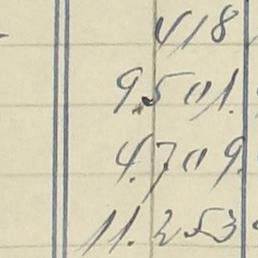 418
9.501.
4.709.
11.253